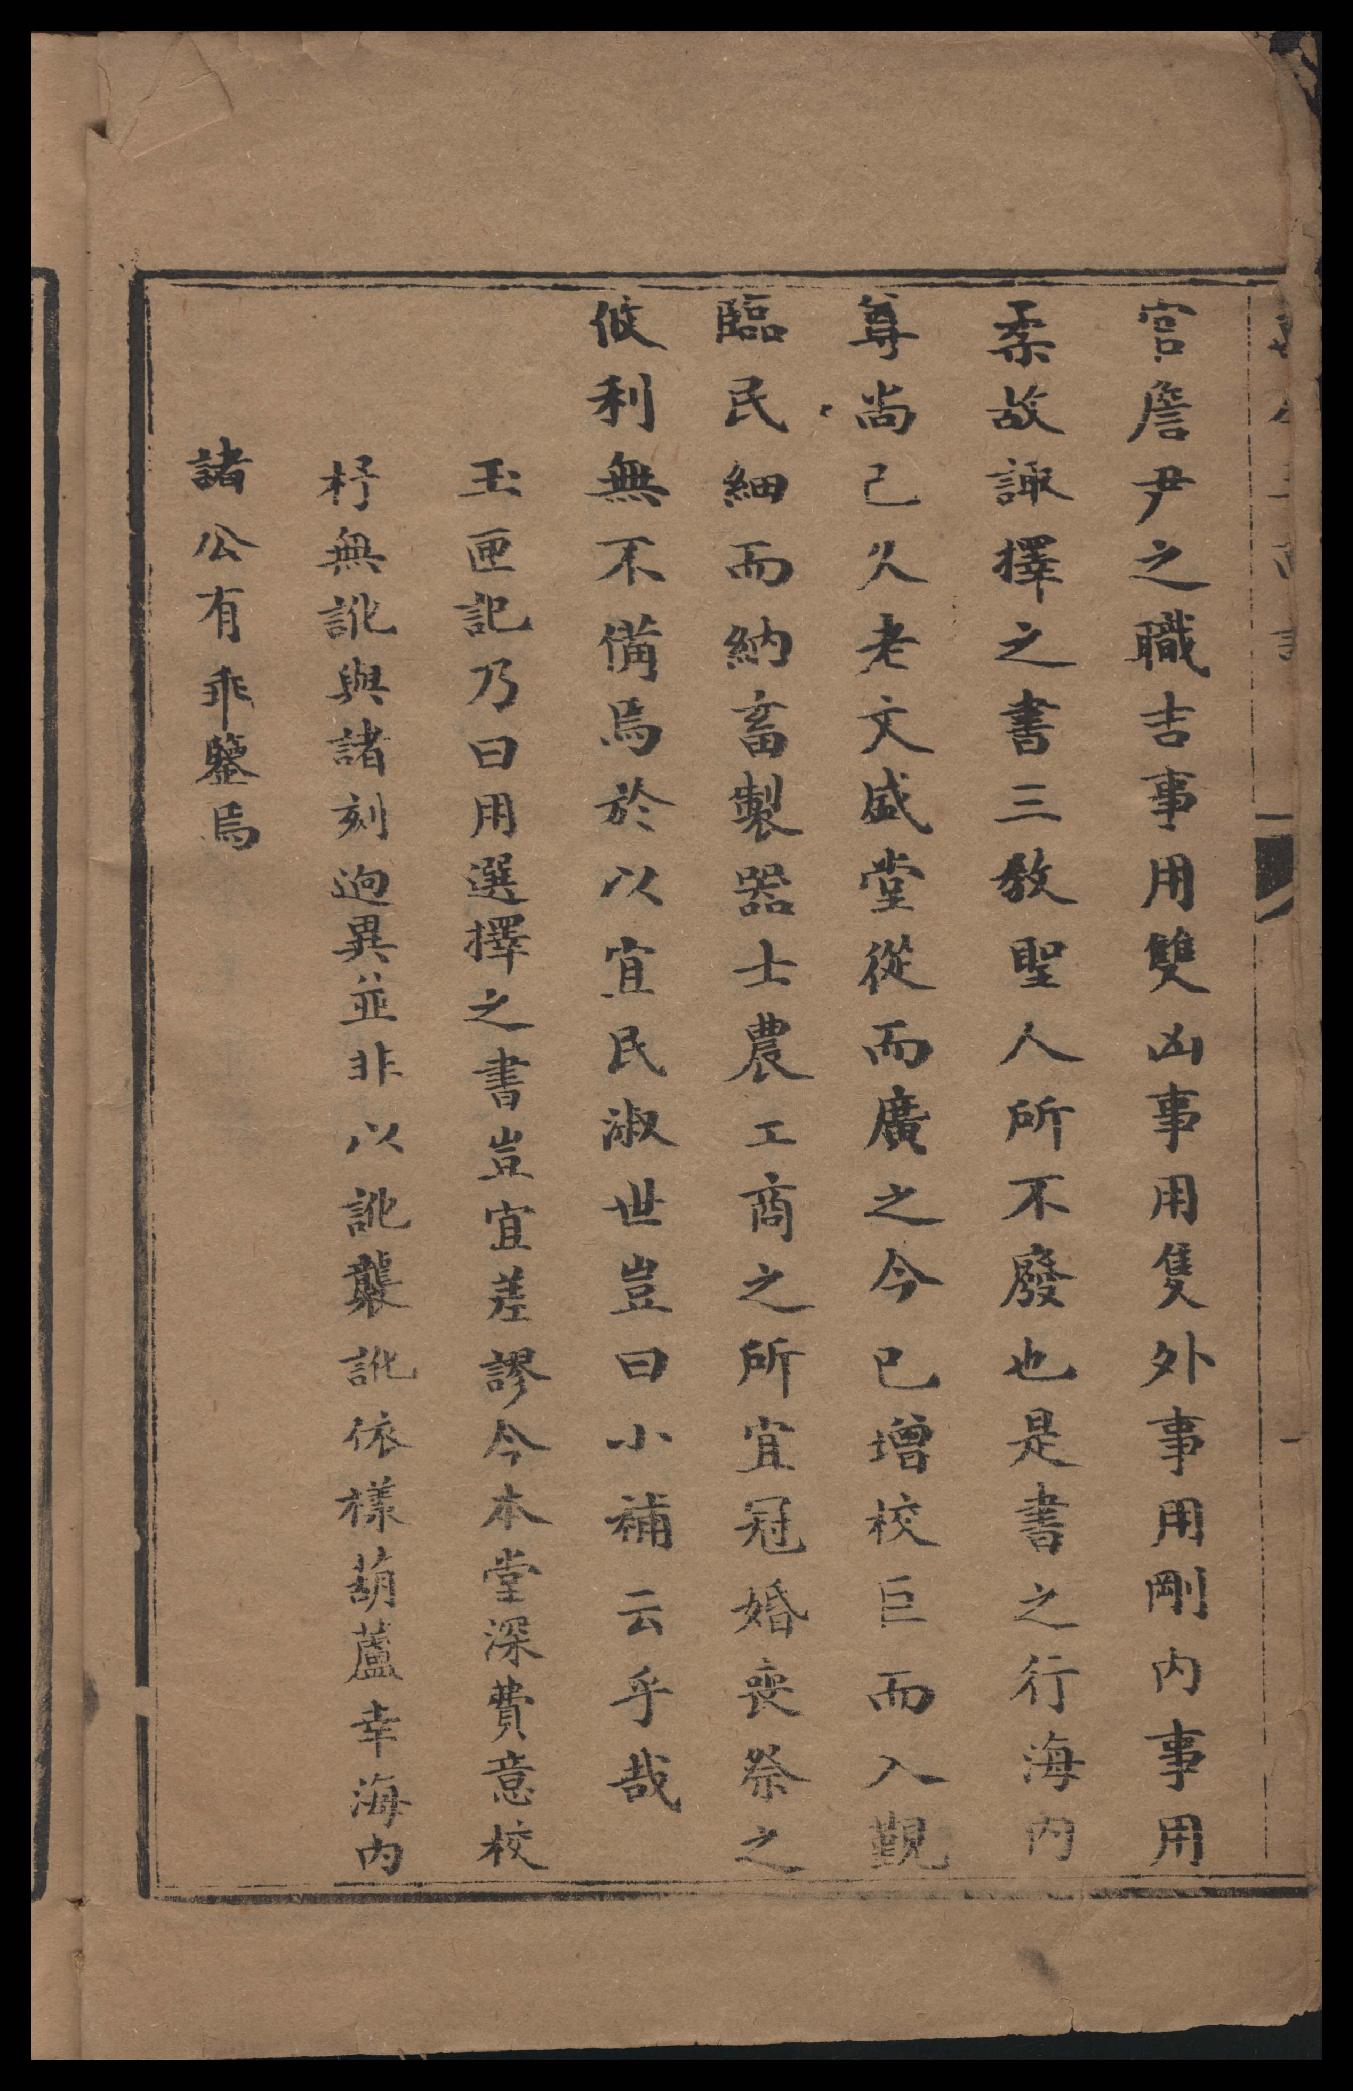 官詹尹之職吉事用雙凶事用隻外事用剛内事用
柔故諏擇之書三教聖人所不廢也是書之行海内
尊尚已久老文盛堂從而廣之今已增校巨而入觀
臨民細而納畜製器士農工商之所宜冠婚喪祭之
攸利無不備焉於以宜民淑世豈曰小補云乎哉
玉匣記乃曰用選擇之書豈宜差謬今本堂深費意校
杼無訛與諸刻迥異並非以訛襲訛依樣葫蘆幸海内
諸公有乖鑒焉